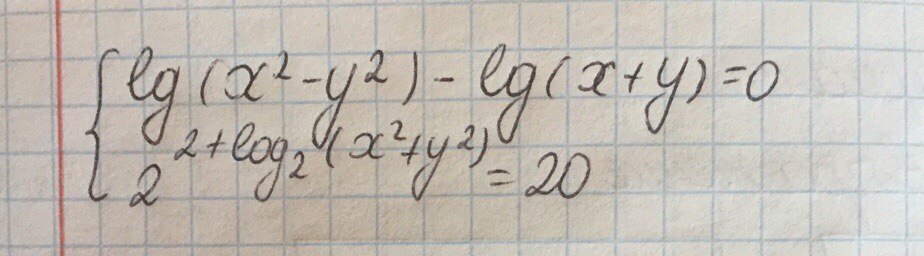 { lg(x²-y²)-lg(x+y)=0
2^(2+log₂(x²+y²))=20